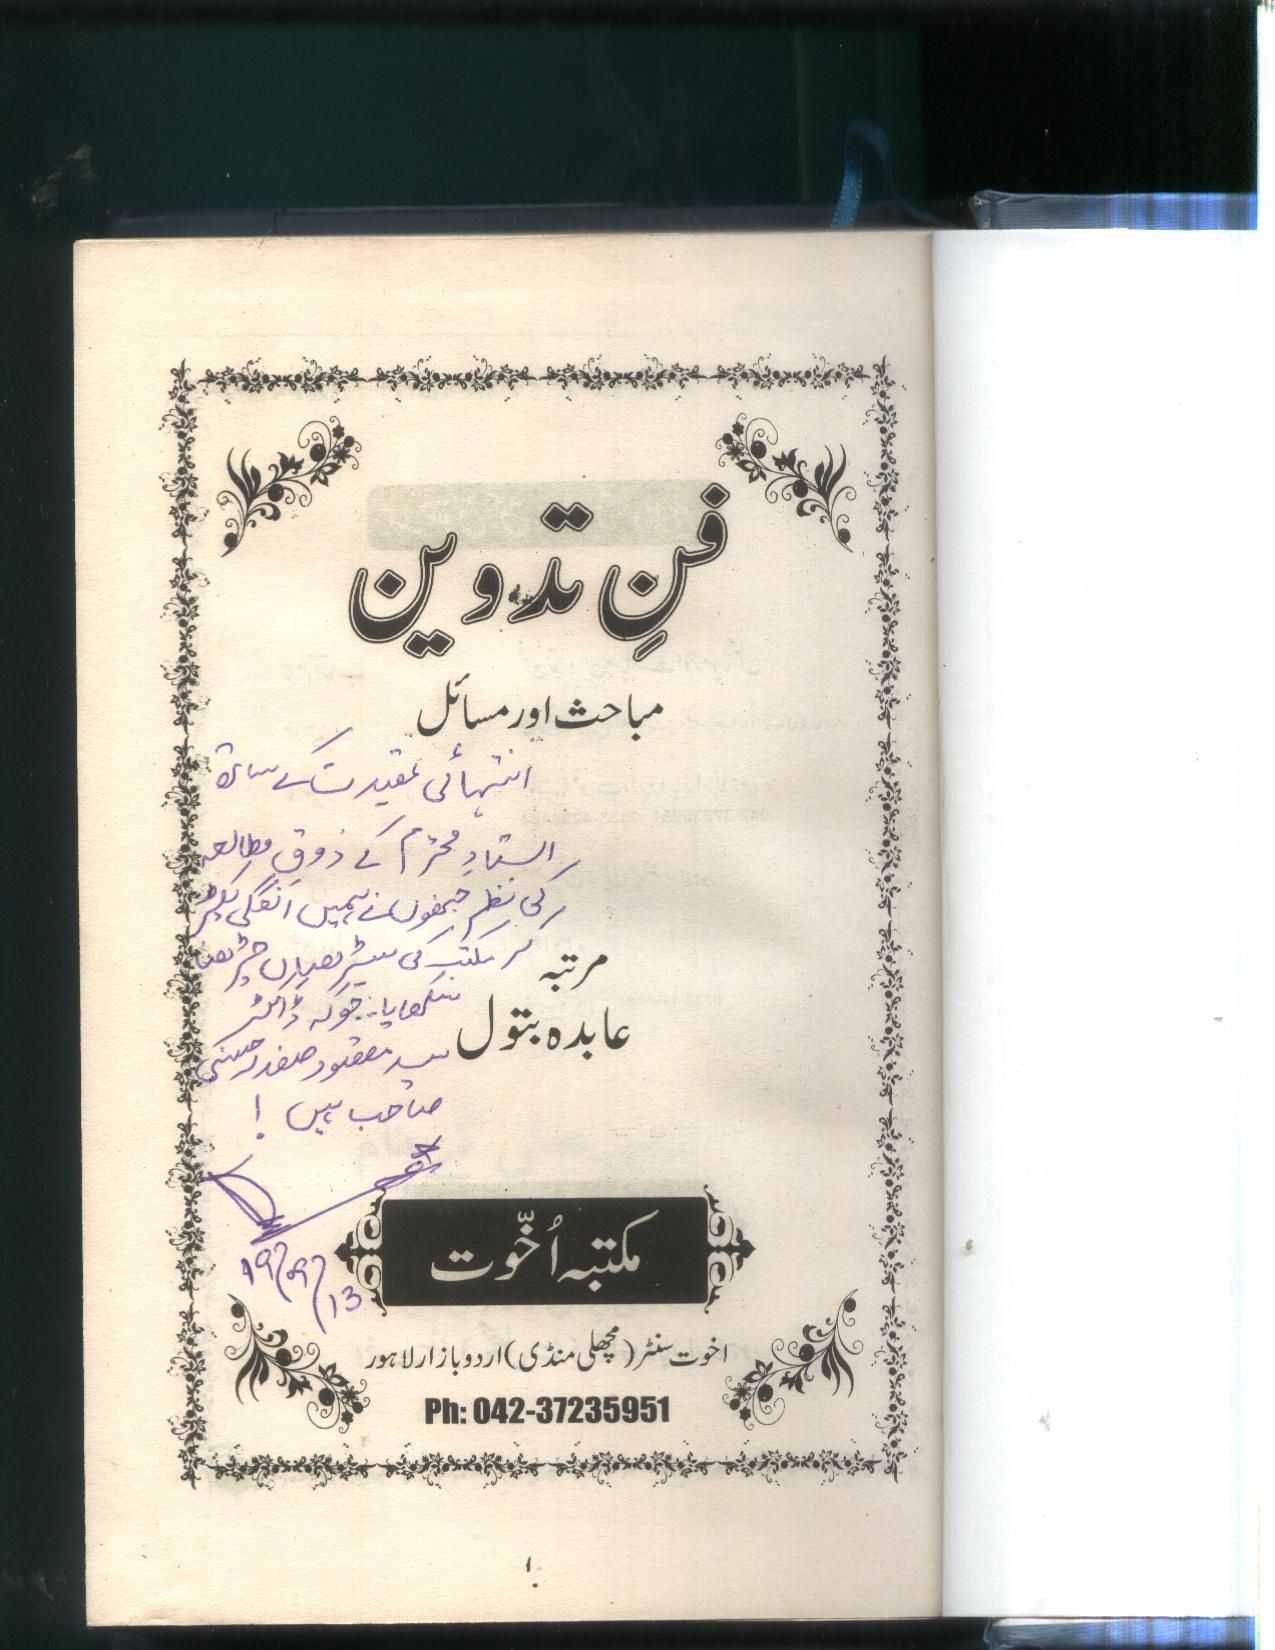 فنِ تدوین
مباحث اور مسائل
انتہائی عقیدت کے ساتھ
استادِ محترم کے ذوقِ مطالعہ
کی نظر جنھوں نے ہمیں انگلی پکڑ
کر مکتب کی سیڑھیاں چڑھنا
سکھایا۔ جو کہ ڈاکٹر
سید مقصود حسنی
صاحب ہیں !
19/09/13
مرتبہ
عابدہ بتول
مکتبہ اُخوّت
اخوت سنٹر (مچھلی منڈی) اردو بازار لاہور
Ph: 042-37235951
۱